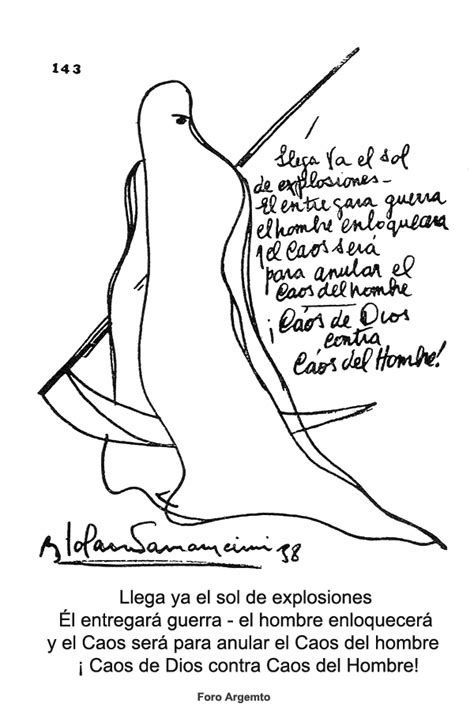 143
Llega ya el sol
de explosiones -
El entregara guerra
el hombre enloquecera
y el Caos será
para anular el
Caos del hombre
¡Cáos de Dios
contra
Cáos del Hombre!
38
Llega ya el sol de explosiones
Él entregará guerra - el hombre enloquecerá
y el Caos será para anular el Caos del hombre
¡ Caos de Dios contra Caos del Hombre!
Foro Argemto